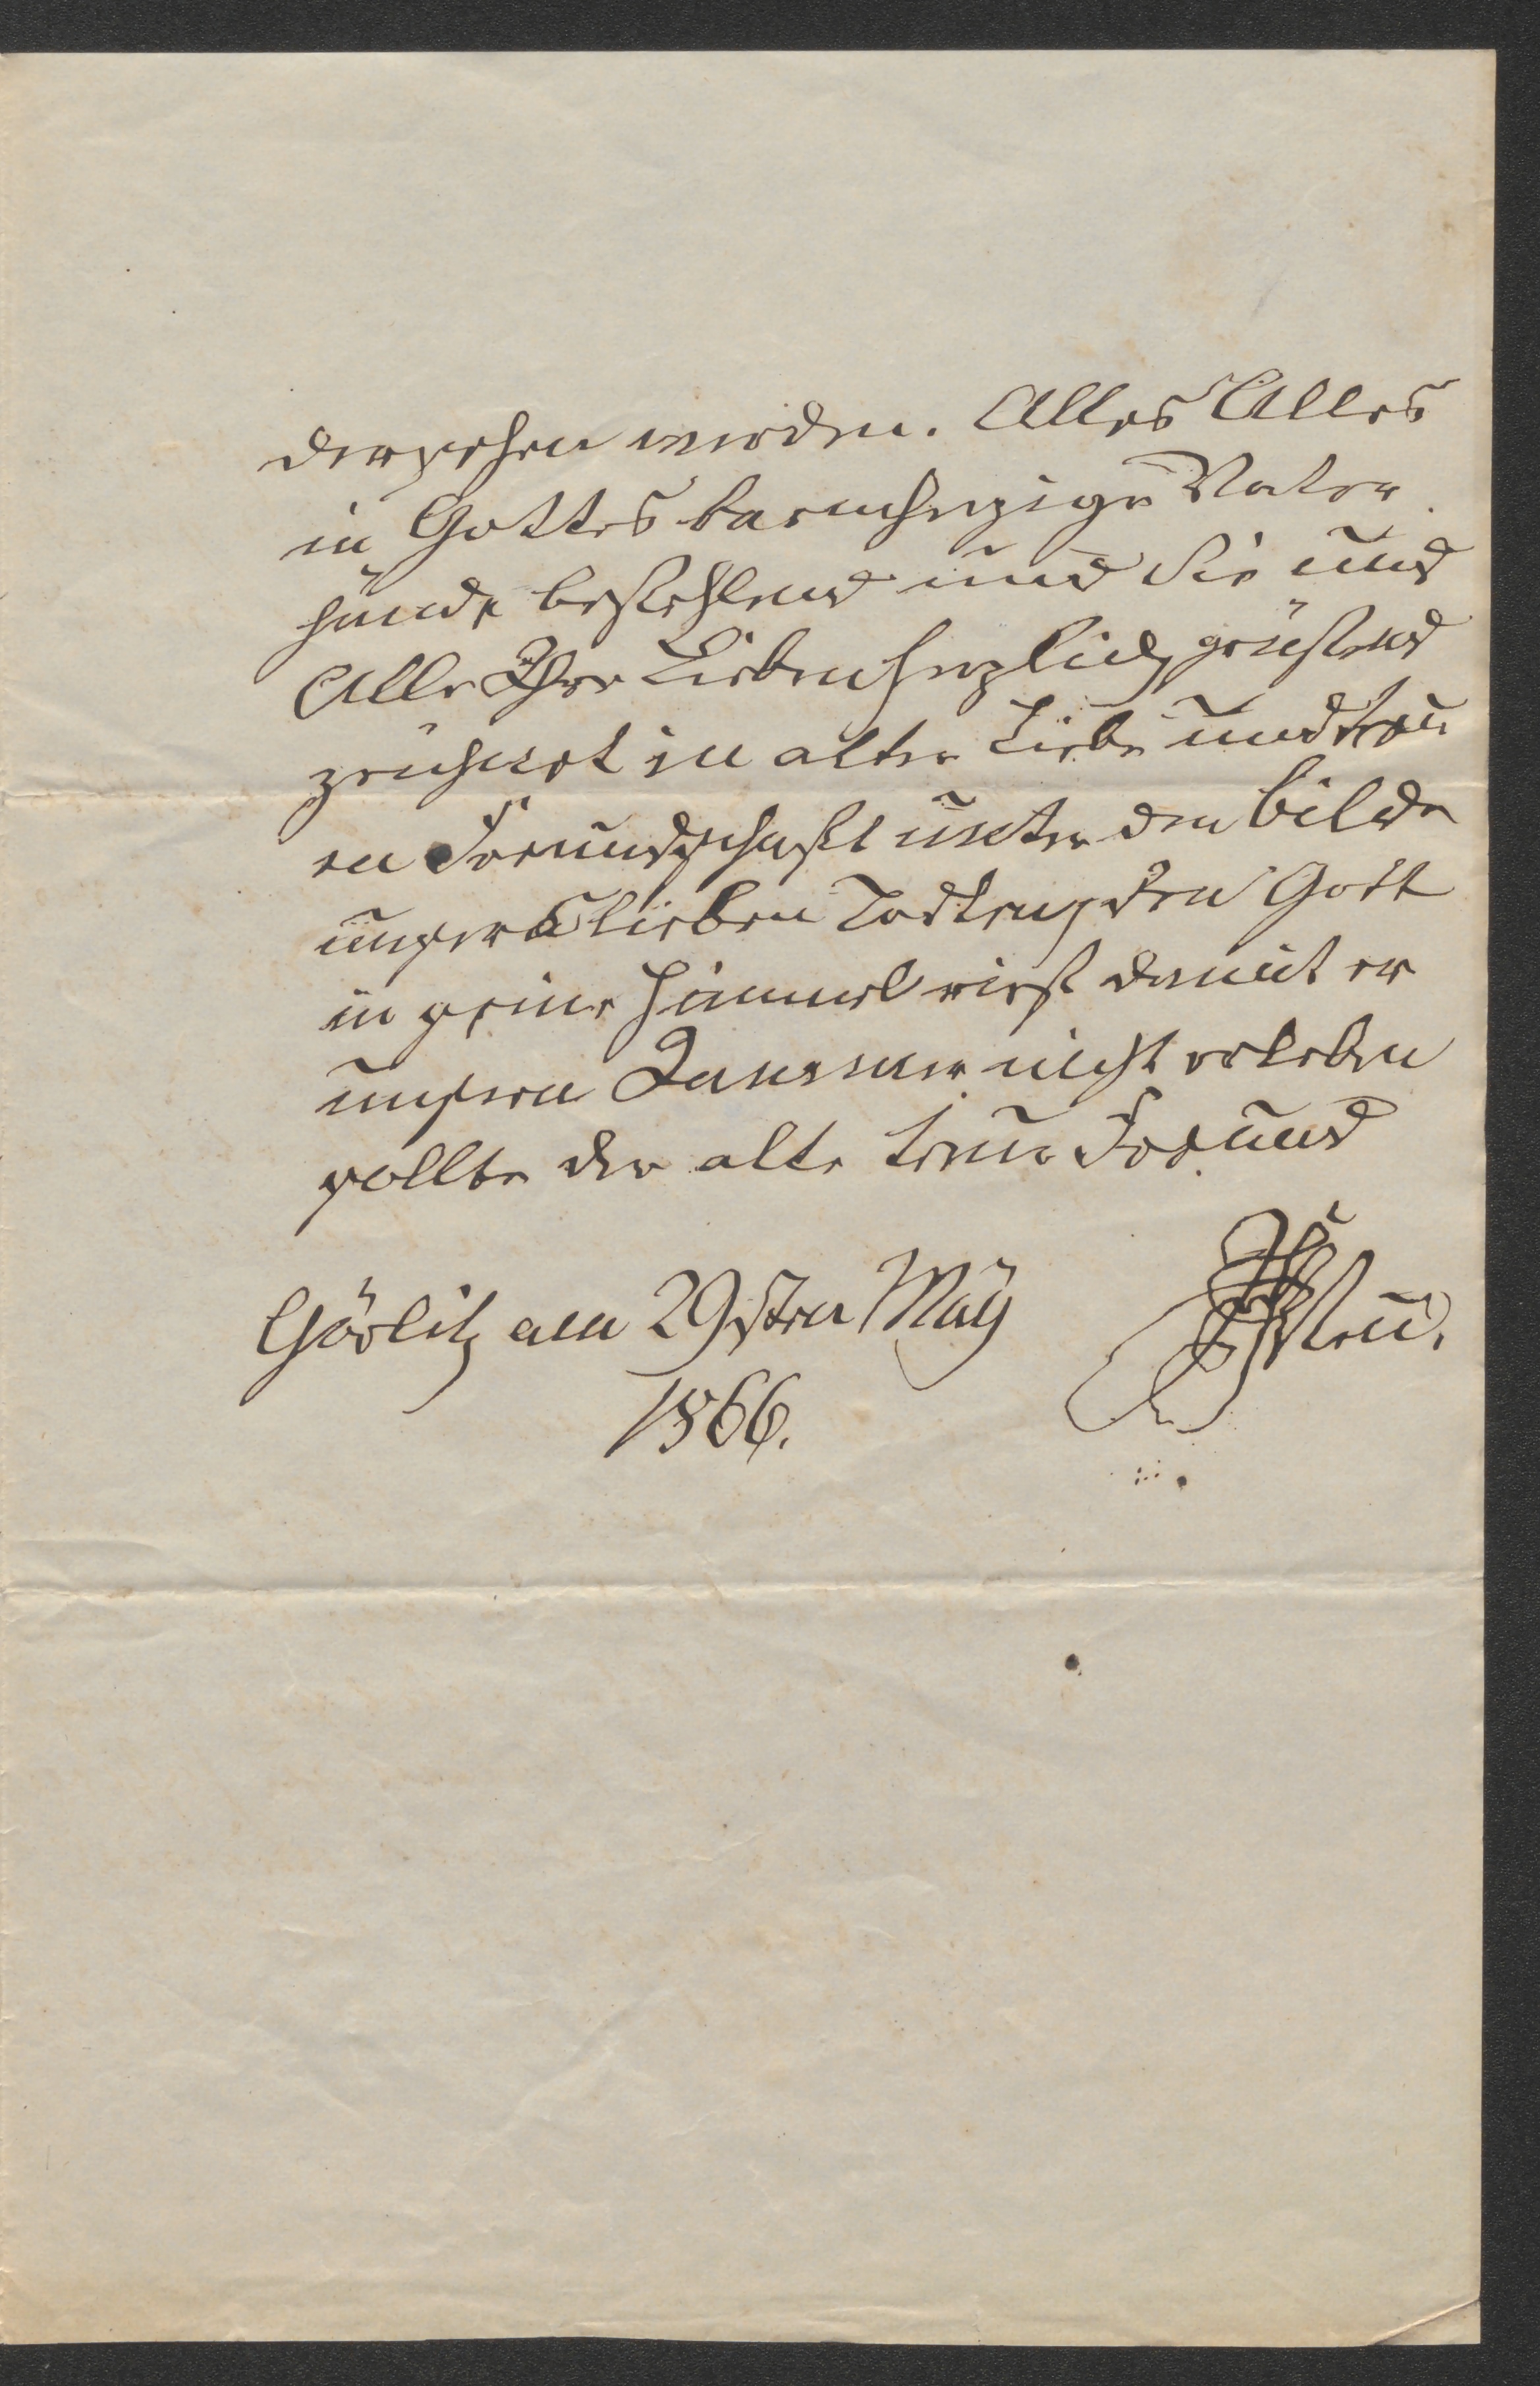 dersehen werden. Alles Alles
in Gottes barmherzige Vater
hände befehlend und Sie und
Alle Ihre Lieben herzlich grüßend
zeichnet in alter Liebe und treu
en Freundschaft unter dem Bilde
unsers lieben Todten, den Gott
in seine Himmel rief damit er
unsern Jammer nicht erleben
sollte der alte treue Freund
Görlitz am 29sten May
1866.